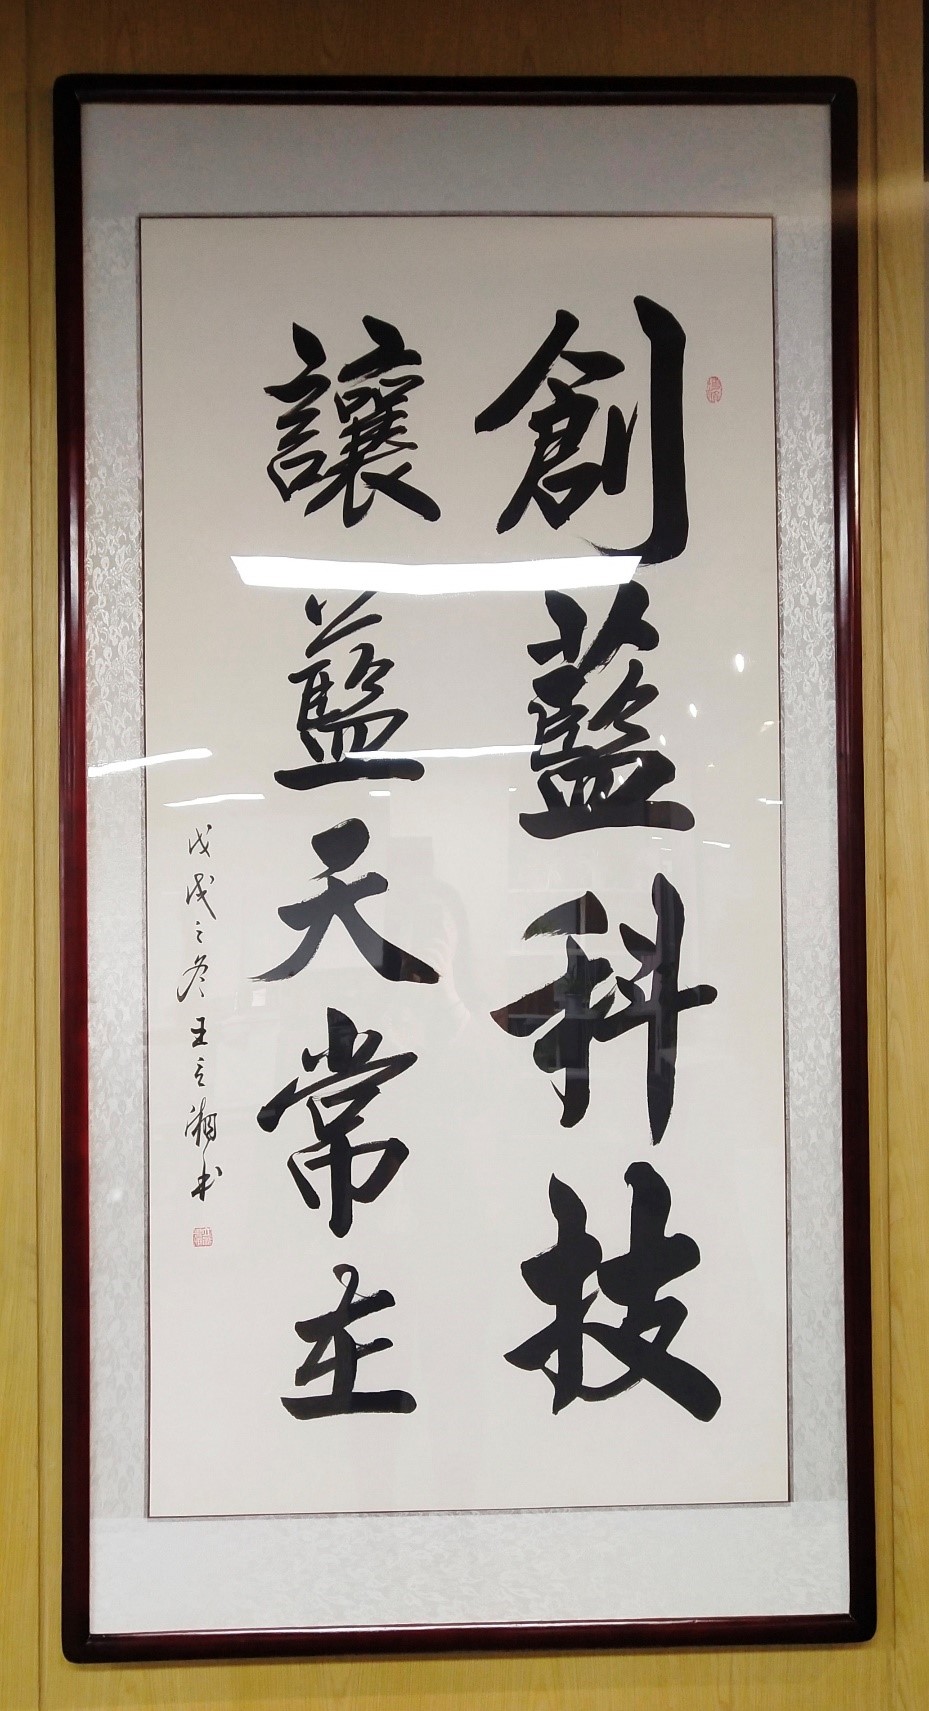 創藍科技
讓藍天常在
戊戌之冬王立湘书